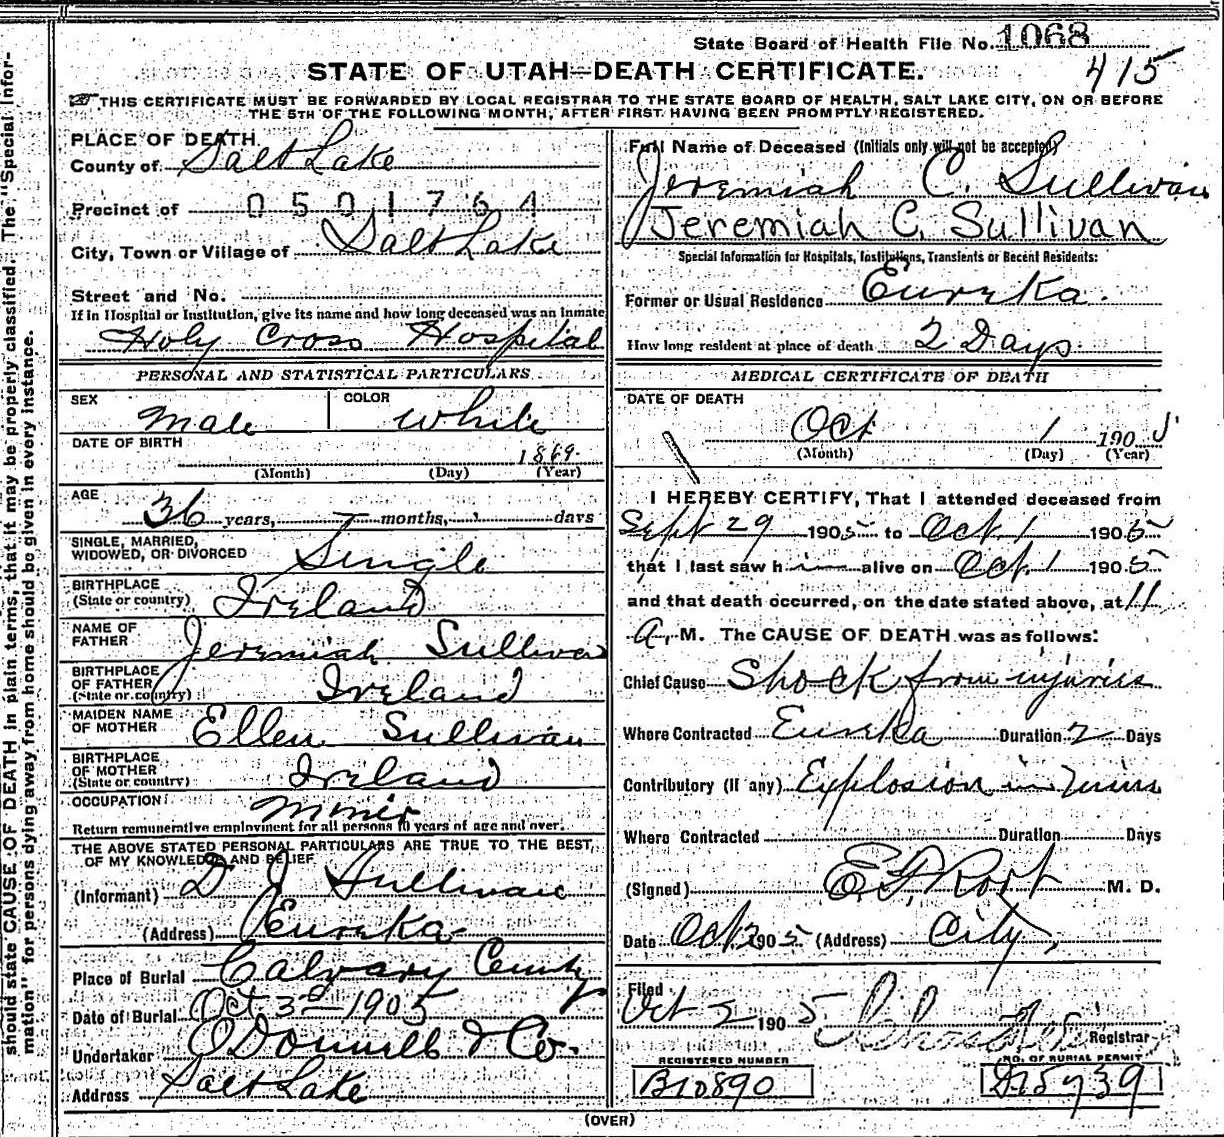 State Board of Health File No. 1068
415
STATE OF UTAH—DEATH CERTIFICATE.
THIS CERTIFICATE MUST BE FORWARDED BY LOCAL REGISTRAR TO THE STATE BOARD OF HEALTH, SALT LAKE CITY, ON OR BEFORE
THE 5TH OF THE FOLLOWING MONTH, AFTER FIRST HAVING BEEN PROMPTLY REGISTERED.
PLACE OF DEATH
County of Salt Lake
Precinct of 0501764
City, Town or Village of Salt Lake
Street and No.
If in Hospital or Institution, give its name and how long deceased was an inmate
Holy Cross Hospital
PERSONAL AND STATISTICAL PARTICULARS
SEX Male COLOR White
DATE OF BIRTH 1869
(Month) (Day) (Year)
AGE 36 years, months, days
SINGLE, MARRIED,
WIDOWED, OR DIVORCED Single
BIRTHPLACE
(State or country) Ireland
NAME OF
FATHER Jeremiah Sullivan
BIRTHPLACE
OF FATHER
(State or country) Ireland
MAIDEN NAME
OF MOTHER Ellen Sullivan
BIRTHPLACE
OF MOTHER
(State or country) Ireland
OCCUPATION Miner
Return remunerative employment for all persons 10 years of age and over.
THE ABOVE STATED PERSONAL PARTICULARS ARE TRUE TO THE BEST
OF MY KNOWLEDGE AND BELIEF
(Informant) D J Sullivan
(Address) Eureka
Place of Burial Calvary Cemty
Date of Burial Oct 3rd 1905
Undertaker O'Donnell & Co.
Address Salt Lake
Full Name of Deceased (Initials only will not be accepted)
Jeremiah C. Sullivan
Jeremiah C. Sullivan
Special Information for Hospitals, Institutions, Transients or Recent Residents:
Former or Usual Residence Eureka.
How long resident at place of death 2 Days
MEDICAL CERTIFICATE OF DEATH
DATE OF DEATH
Oct 1 1905
(Month) (Day) (Year)
I HEREBY CERTIFY, That I attended deceased from
Sept 29 1905 to Oct. 1 1905
that I last saw him alive on Oct. 1 1905
and that death occurred, on the date stated above, at 11
A. M. The CAUSE OF DEATH was as follows:
Chief Cause Shock from injuries
Where Contracted Eureka Duration 2 Days
Contributory (If any) Explosion in mine
Where Contracted Duration Days
(Signed) M. D.
Date Oct. 1905 (Address) City,
Filed
Oct 2 1905 Registrar
REGISTERED NUMBER
B10890
NO. OF BURIAL PERMIT
D15739
(OVER)
should state CAUSE OF DEATH in plain terms, that it may be properly classified. The "Special Infor-
mation" for persons dying away from home should be given in every instance.